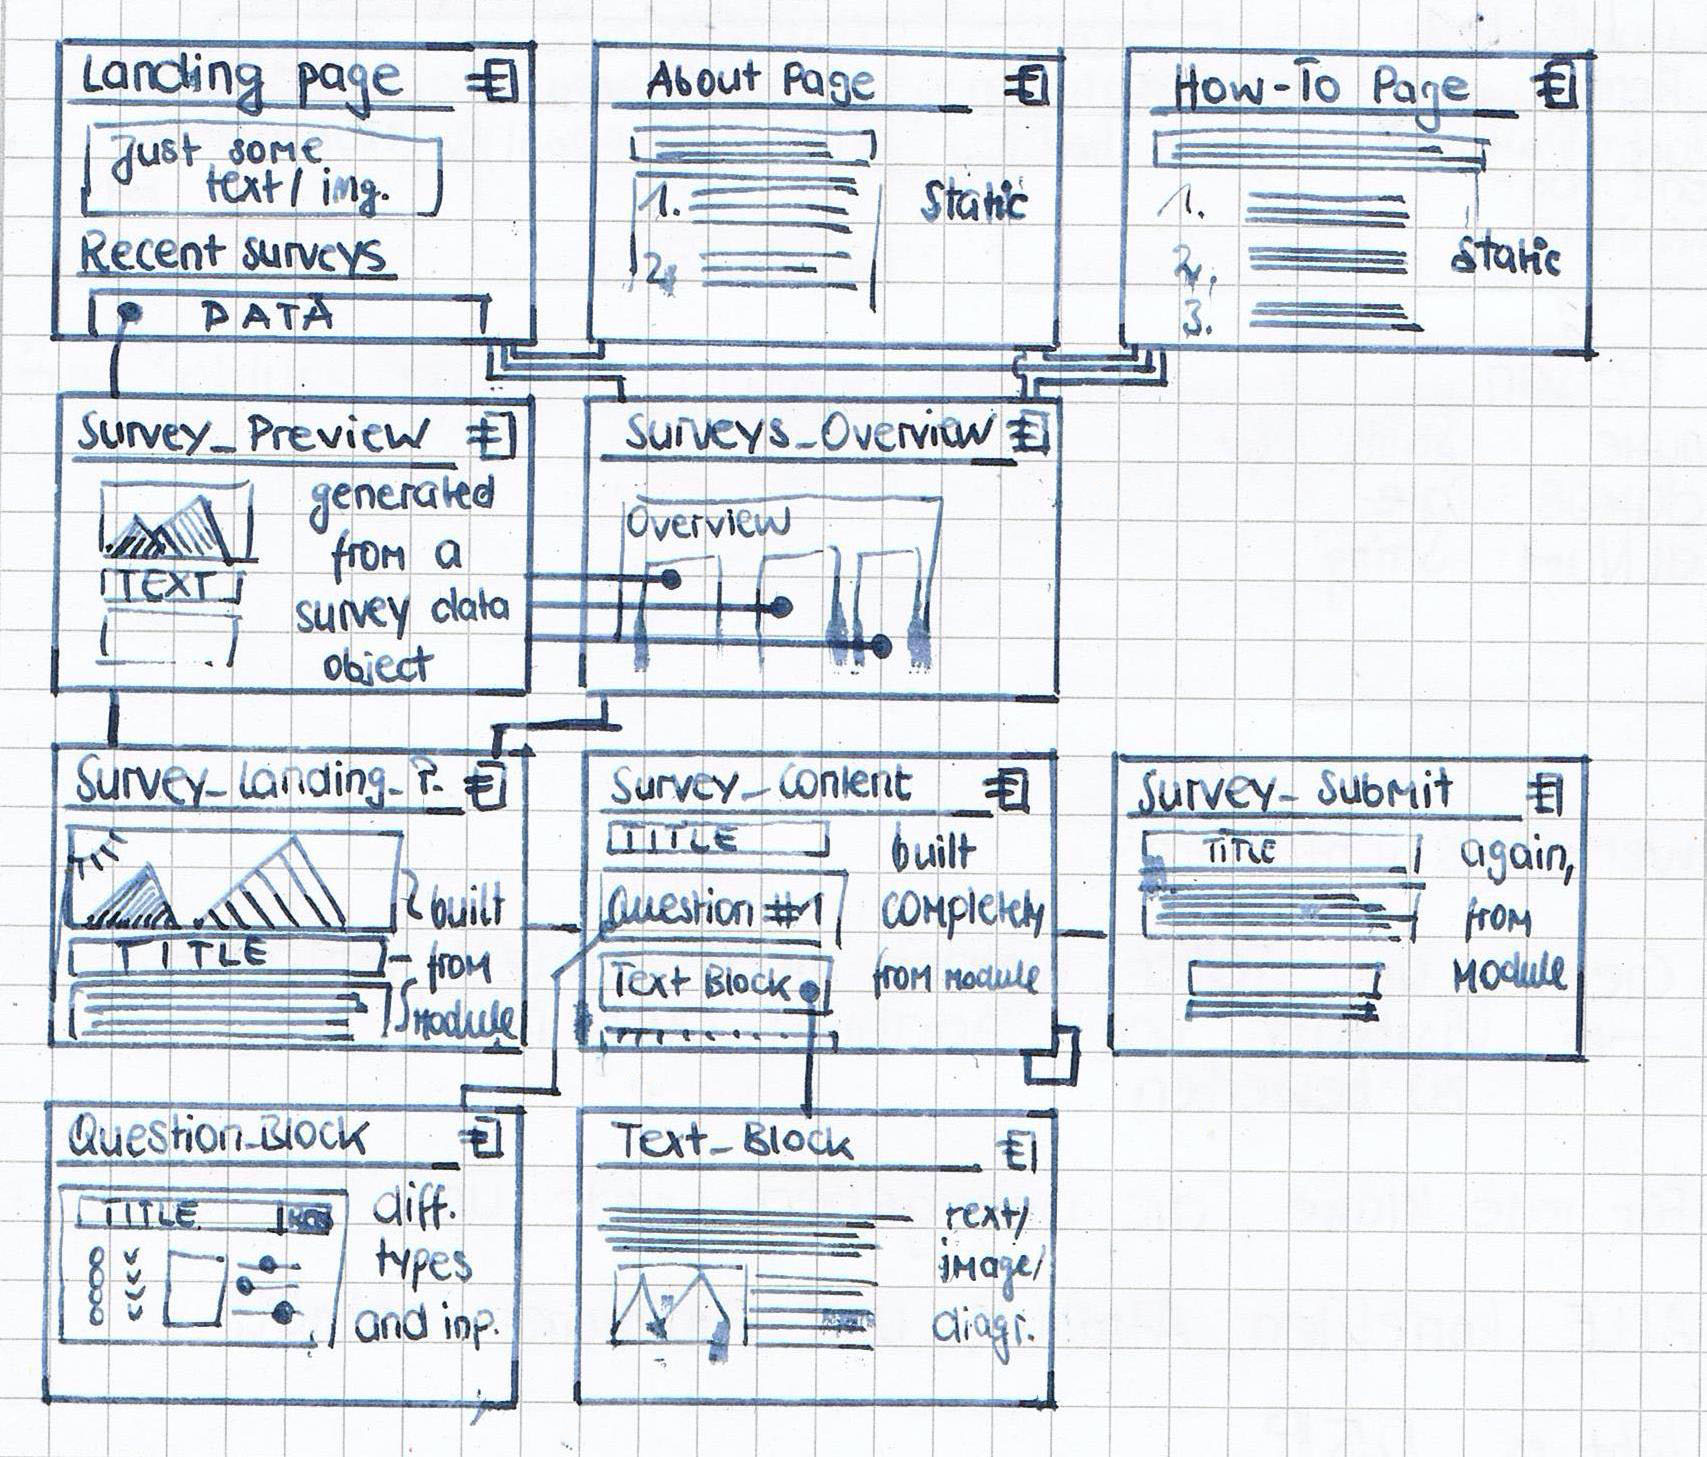 Landing page
Just some
text/img.
Recent surveys
DATA
About Page
1.
2.
static
How-To Page
1.
2.
3.
static
Survey_Preview
TEXT
generated
from a
survey data
object
Surveys_Overview
Overview
Survey_Landing_P.
TITLE
built
from
Module
Survey_Content
TITLE
Question #1
Text Block
built
completely
from module
Survey_Submit
TITLE
again,
from
Module
Question_Block
TITLE
diff.
types
and inp.
Text_Block
text/
image/
diagr.